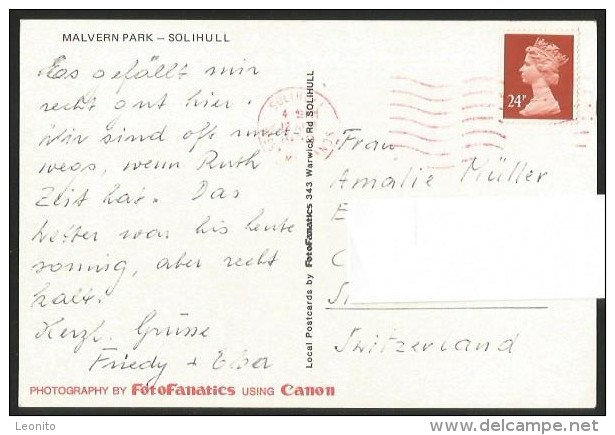 MALVERN PARK – SOLIHULL
Es gefällt mir
recht gut hier.
Wir sind oft unter-
wegs, wenn Ruth
Zeit hat. Das
Wetter war bis heute
sonnig, aber recht
kalt.
Herzl. Grüsse
Friedy +
PHOTOGRAPHY BY FotoFanatics USING Canon
Local Postcards by FotoFanatics 343 Warwick Rd SOLIHULL
SOLIHULL
24P
Frau
Amalie Müller
E
C
Switzerland
Leonito
www.delcampe.net